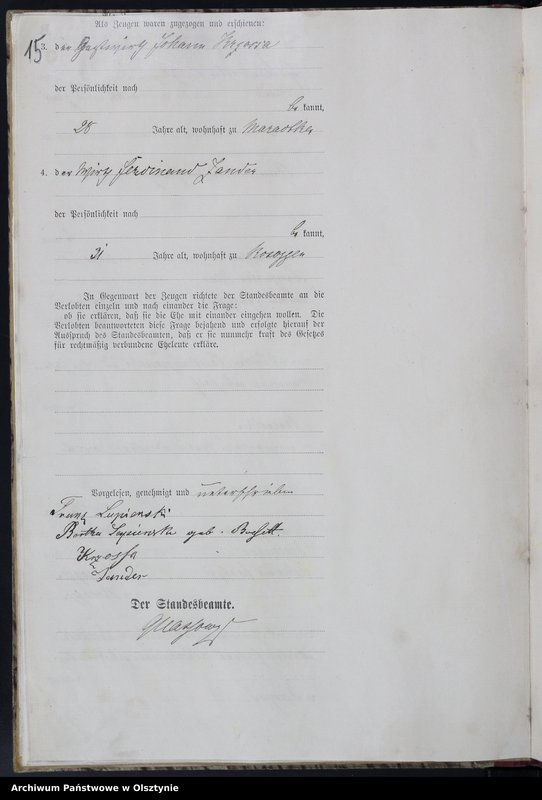 Als Zeugen waren zugezogen und erschienen:
15
3. der Gastwirth Johann Krzossa
der Persönlichkeit nach
be kannt,
28 Jahre alt, wohnhaft zu
4. der Wirth Ferdinand Zander
der Persönlichkeit nach
be kannt,
31 Jahre alt, wohnhaft zu
In Gegenwart der Zeugen richtete der Standesbeamte an die
Verlobten einzeln und nach einander die Frage:
ob sie erklären, daß sie die Ehe mit einander eingehen wollen. Die
Verlobten beantworteten diese Frage bejahend und erfolgte hierauf der
Ausspruch des Standesbeamten, daß er sie nunmehr kraft des Gesetzes
für rechtmäßig verbundene Eheleute erkläre.
Vorgelesen, genehmigt und unterschrieben
Franz Lupienski
Bertha Lupienski geb.
Krzossa
Zander
Der Standesbeamte.
Archiwum Państwowe w Olsztynie